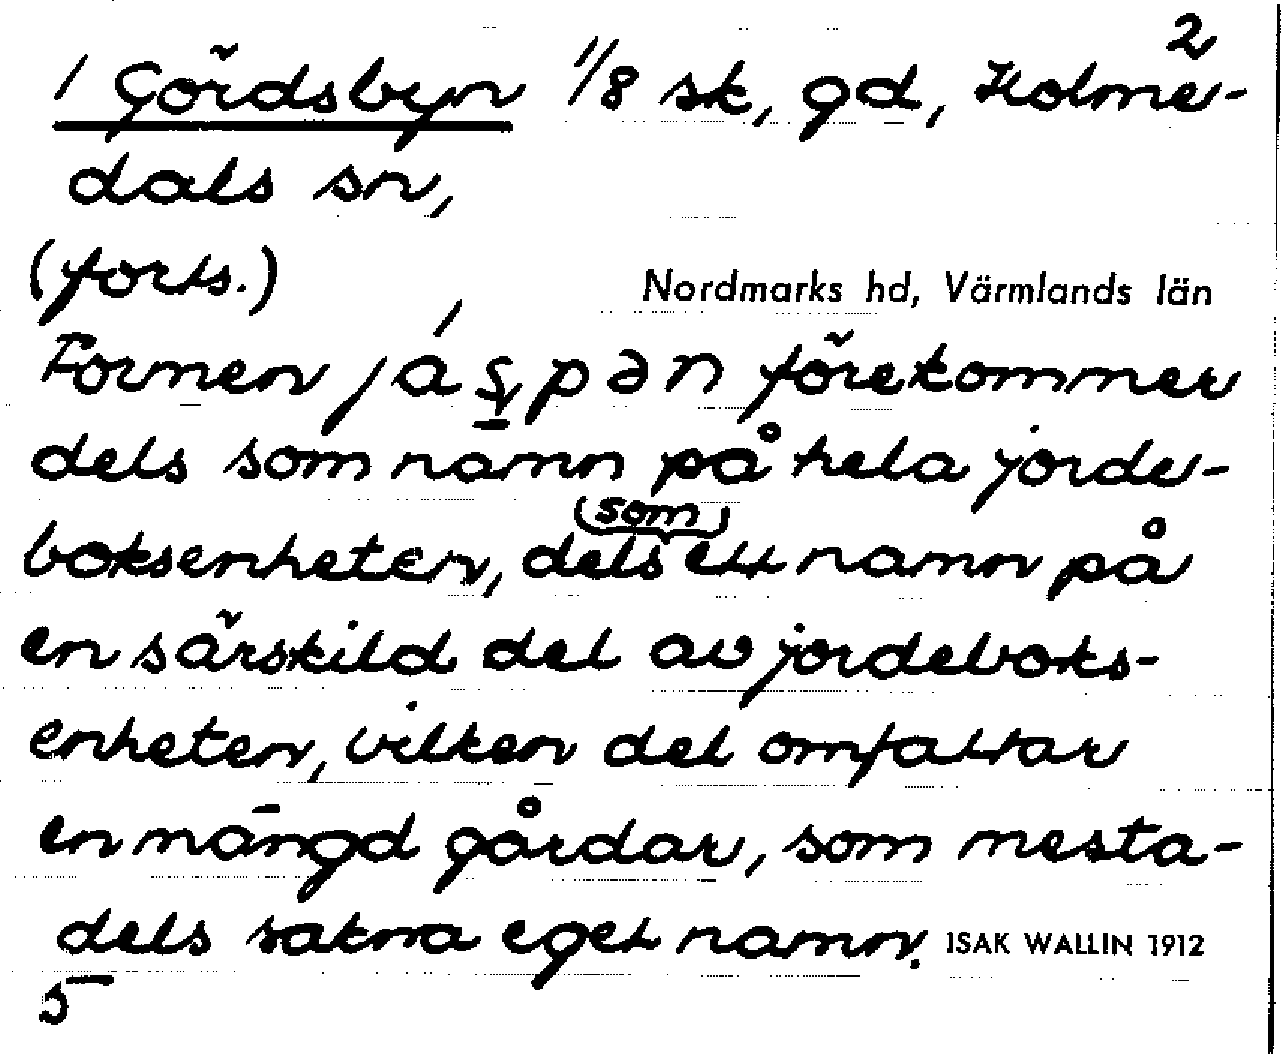 2
/ Gördsbyn 1/8 sk, gd, Holme-
dals sn,
(forts.)
Nordmarks hd, Värmlands län
Formen förekommer
dels som namn på hela jorde-
boksenheten, dels (som) ett namn på
en särskild del av jordeboks-
enheten, vilken del omfattar
en mängd gårdar, som mesta-
dels sakna eget namn. ISAK WALLIN 1912
5